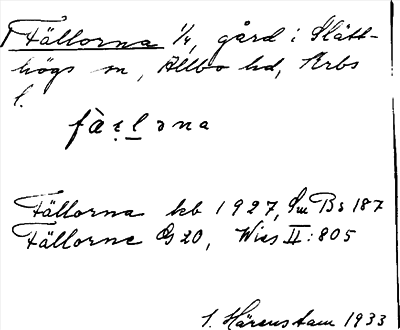 Fällorna 1/4, gård i Slätt-
högs sn, Allbo hd, Krbs
l.
fä̀ḷḷəna
Fällorna kb 1927, Sm Bs 187
Fällorne GJ 20, Wies II:805
S. Härenstam 1933